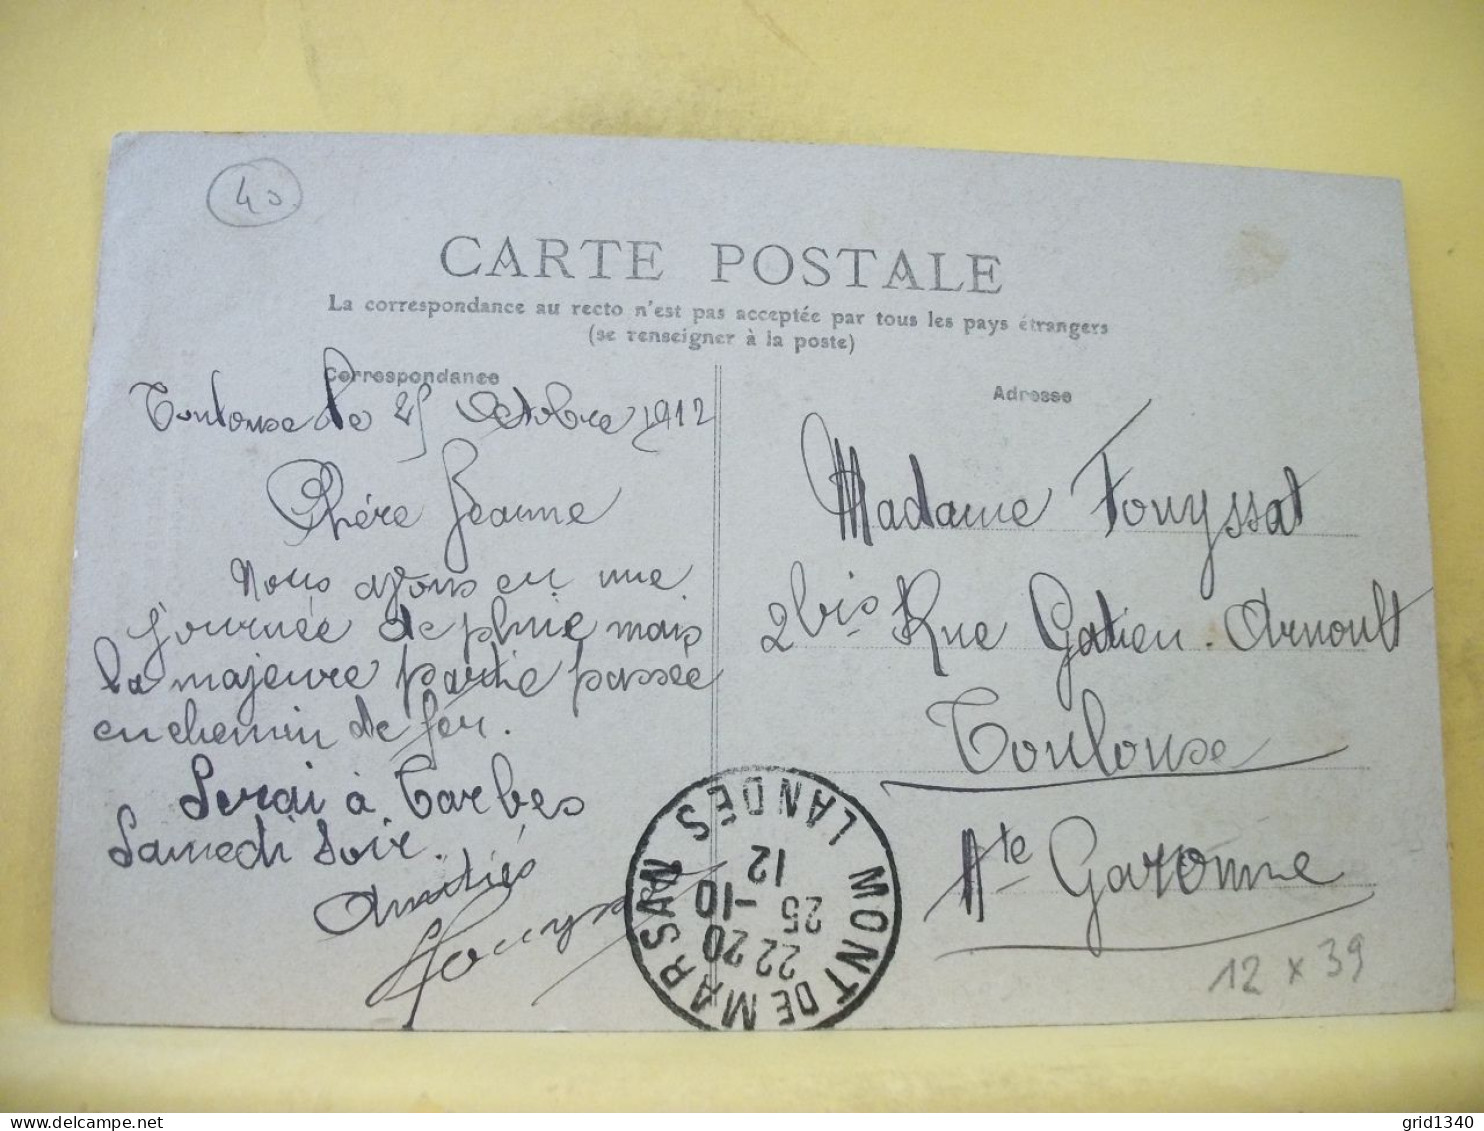 40
CARTE POSTALE
La correspondance au recto n'est pas acceptée par tous les pays étrangers
(se renseigner à la poste)
Correspondance
Toulouse le 25 Octobre 1912
Chère Jeanne
Nous avons eu une
journée de pluie mais
la majeure partie passée
en chemin de fer.
Serai à Tarbes
Samedi soir.
Amitiés
Fouyssat
Adresse
Madame Fouyssat
2 bis Rue Gatien. Arnoult
Toulouse
Hte Garonne
MONT DE MARSAN LANDES
22 20
25 -10
12
12 x 39
grid1340